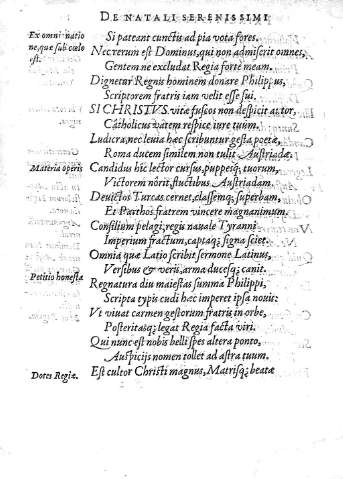 DE NATALI SERENISSIMI
Ex omni natio
ne, que sub cœlo
est.
Si pateant cunctis ad pia vota fores.
Nec rerum est Dominus, qui non admiserit omnes,
Gentem ne excludat Regia forte meam.
Dignetur Regnis hominem donare Philippus,
Scriptorem fratris iam velit esse sui.
SI CHRISTVS vitæ fuscos non despicit auctor,
Catholicus vatem respice iure tuum.
Ludicra, nec leuia hæc scribuntur gesta poetæ,
Roma ducem similem non tulit Austriadæ.
Materia operis
Candidus hic lector cursus, puppesq; tuorum,
Victorem nôrit, fluctibus Austriadam.
Deuictos Turcas cernet, classemq; superbam,
Et Parthos fratrem vincere magnanimum.
Consilium pelagi, regis nauale Tyranni
Imperium fractum, captaq; signa sciet.
Omnia quæ Latio scribit sermone Latinus,
Versibus & veris, arma ducesq; canit.
Petitio honesta
Regnatura diu maiestas summa Philippi,
Scripta typis cudi hæc imperet ipsa nouis:
Vt viuat carmen gestorum fratris in orbe,
Posteritasq; legat Regia facta viri.
Qui nunc est nobis belli spes altera ponto,
Auspicijs nomen tollet ad astra tuum.
Dotes Regiæ.
Est cultor Christi magnus, Matrisq; beatæ